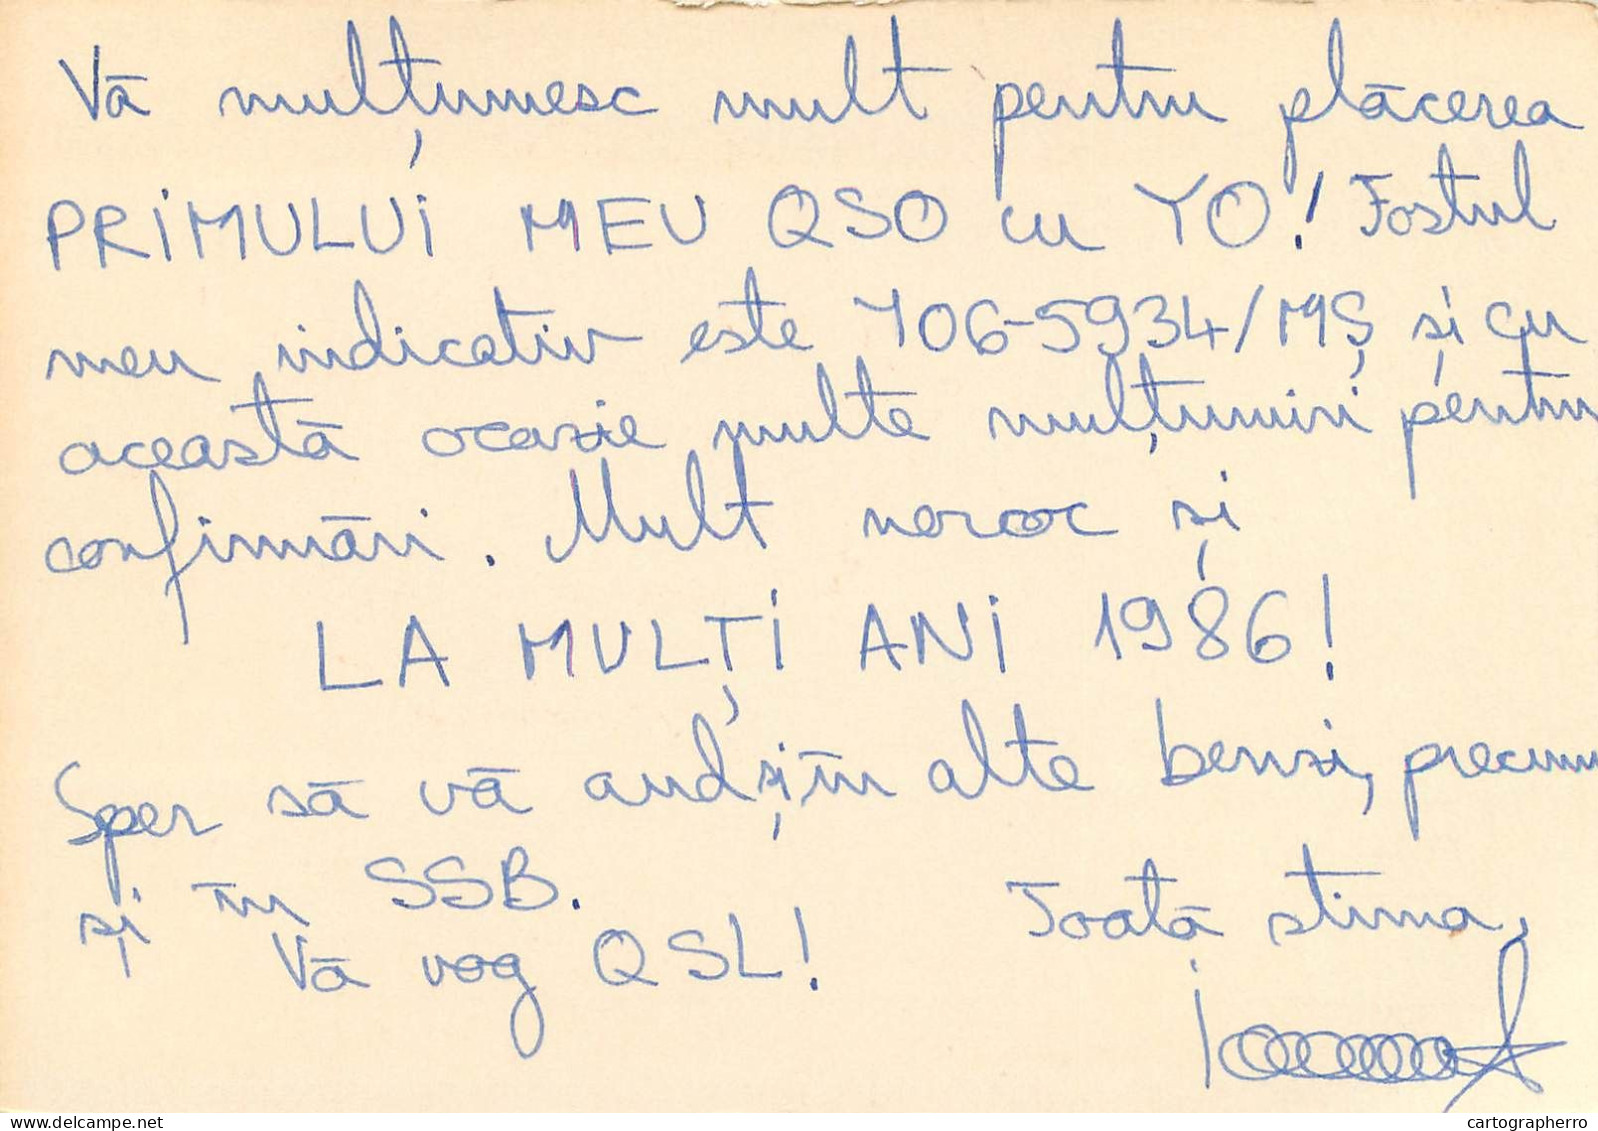 Vă mulțumesc mult pentru plăcerea
PRIMULUI MEU QSO cu YO! Fostul
meu indicativ este YO6-5934/MȘ și cu
această ocazie multe mulțumiri pentru
confirmări. Mult noroc și
LA MULȚI ANI 1986!
Sper să vă aud și în alte benzi, precum
și în SSB.
Toată stima,
Vă rog QSL!
cartographerro